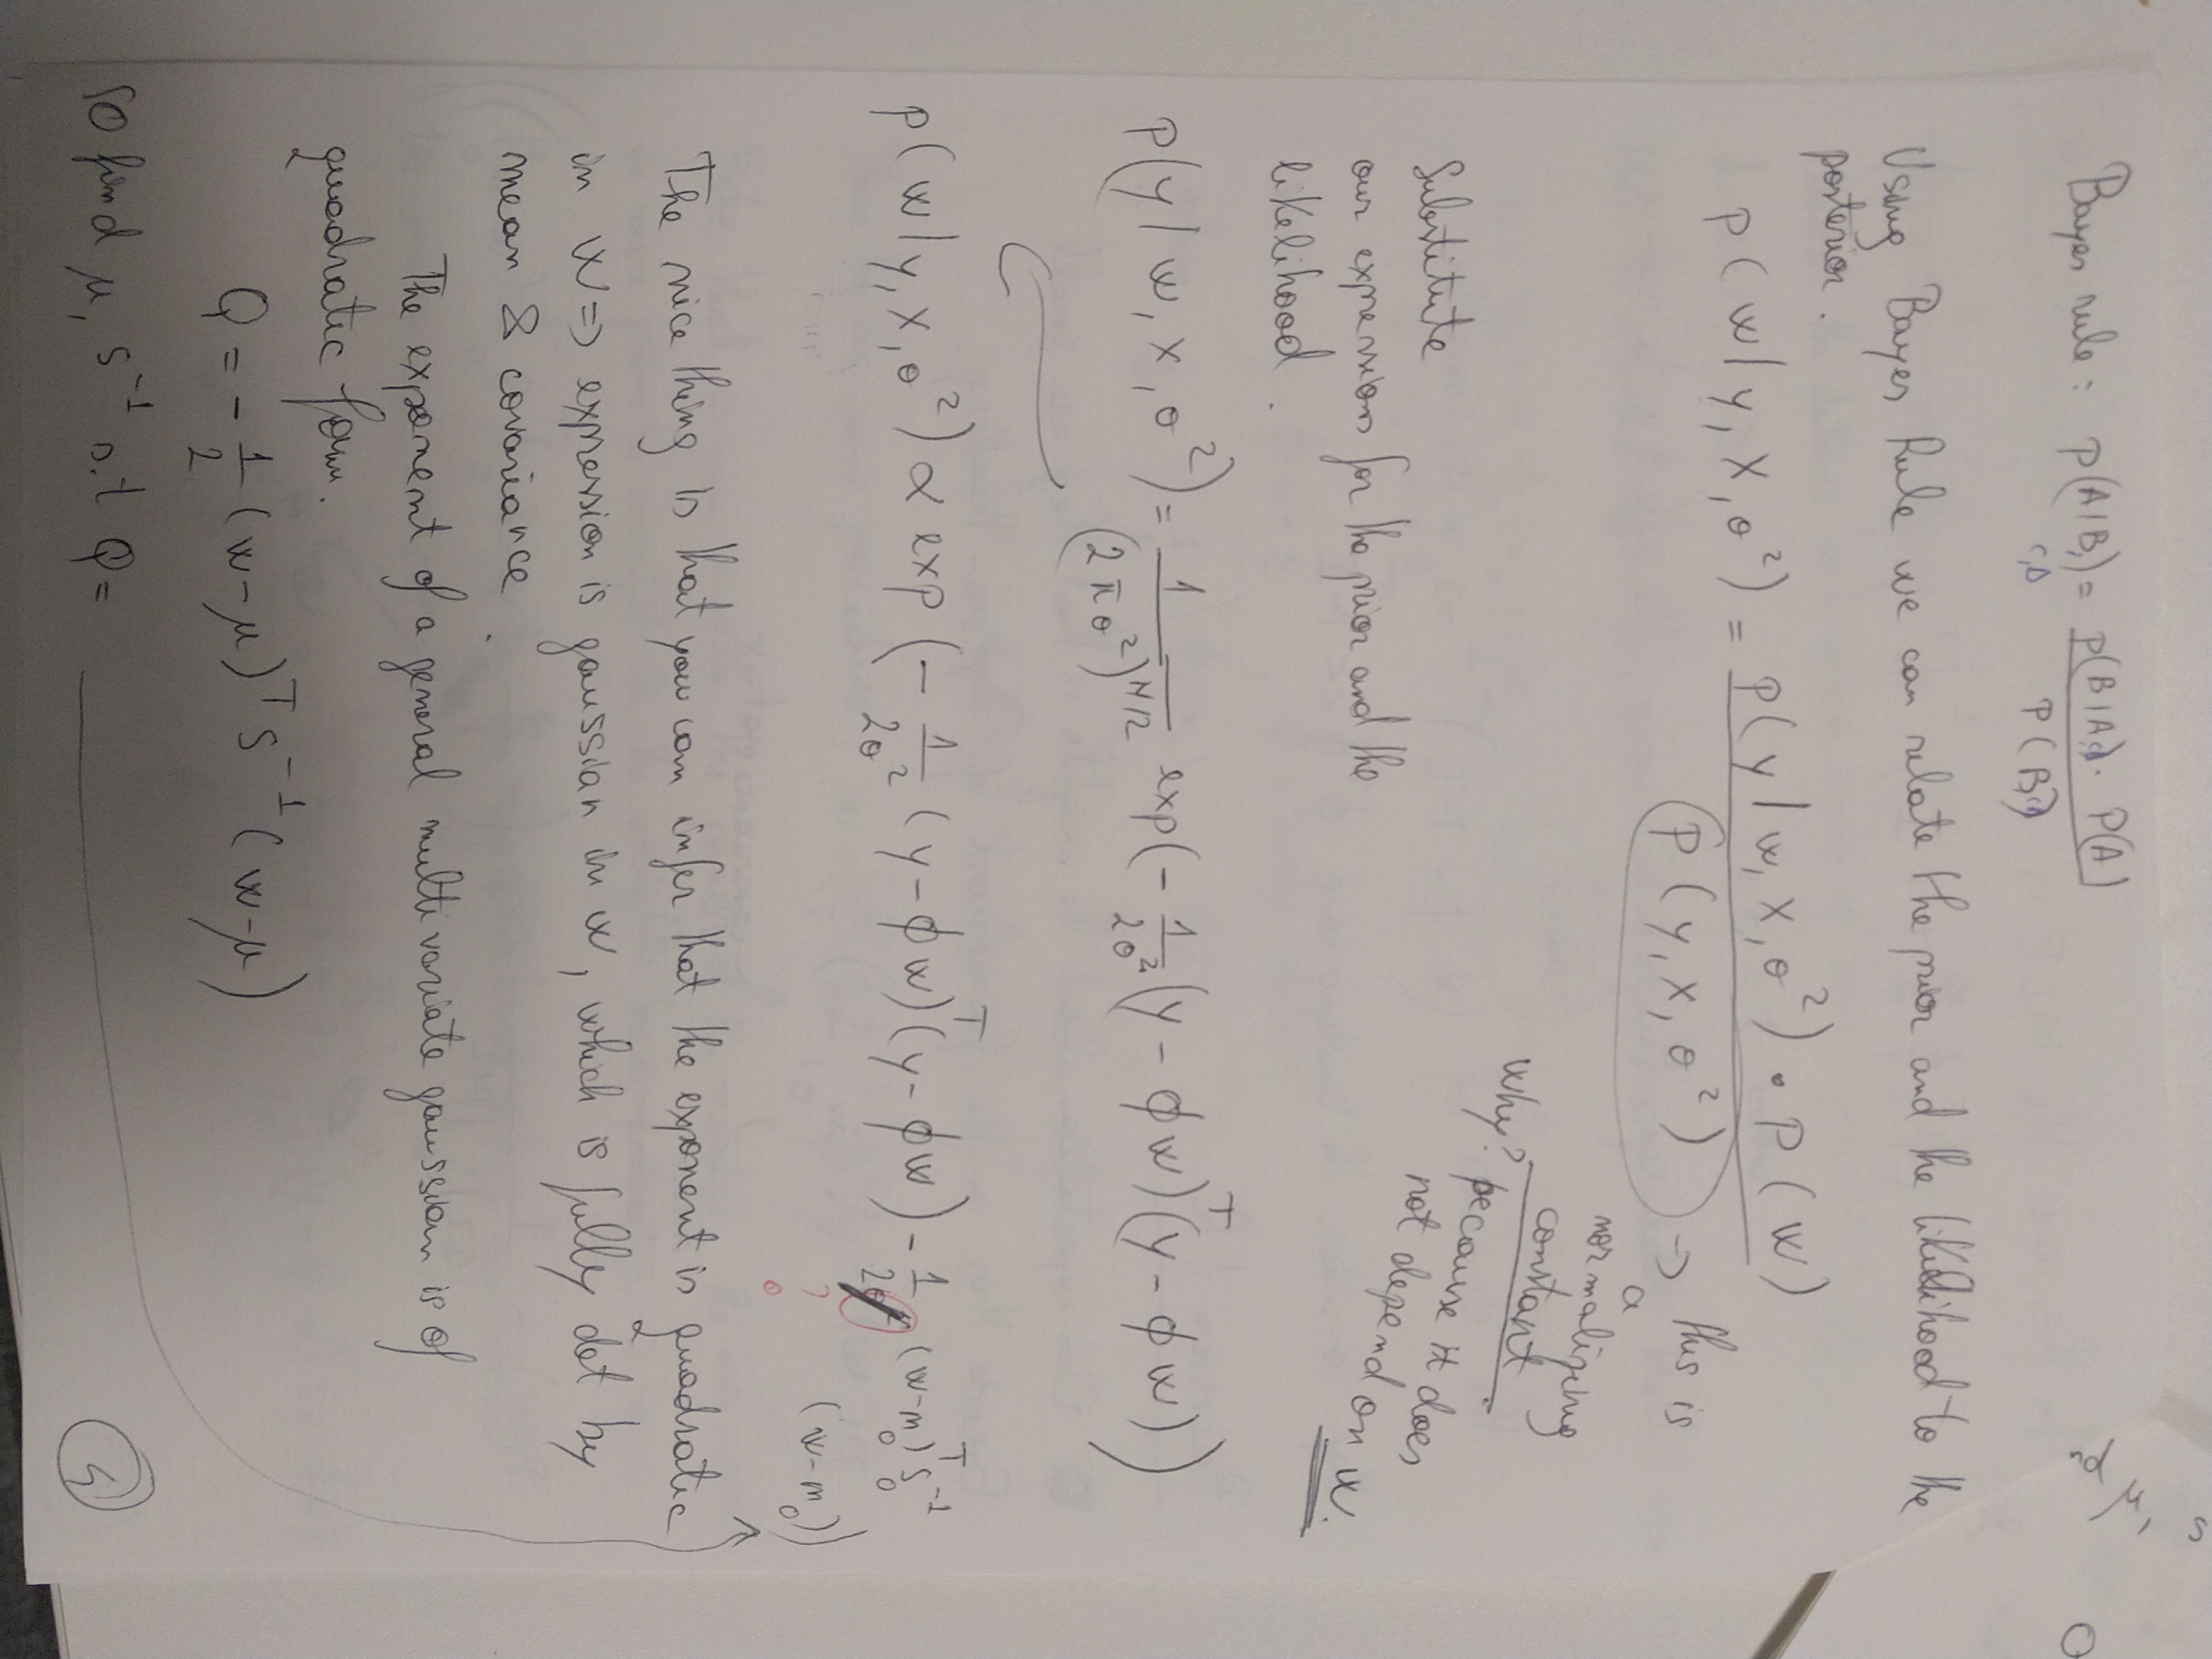 μ, S
Bayes rule: P(A|B,) = P(B|A,) · P(A)
C,D
P(B,)
Using Bayes Rule we can relate the prior and the likelihood to the
posterior.
P(w|y, X, σ²) = P(y|w, X, σ²) · P(w)
P(y, X, σ²) → this is
a
normalizing
constant
Why? because it does
not depend on w.
Substitute
our expressions for the prior and the
likelihood.
P(y|w, X, σ²) = 1/(2πσ²)^{N/2} exp(-1/2σ² (y-ϕw)^T (y-ϕw))
p(w|y, X, σ²) ∝ exp(-1/2σ² (y-ϕw)^T (y-ϕw) - 1/2 (w-m₀)^T S₀^{-1}
(w-m₀))
?
The nice thing is that you can infer that the exponent is quadratic
in w => expression is gaussian in w, which is fully det by
mean & covariance.
The exponent of a general multivariate gaussian is of
quadratic form.
Q = -1/2 (w-μ)^T S^{-1} (w-μ)
So find μ, S^{-1} s.t Q =
5